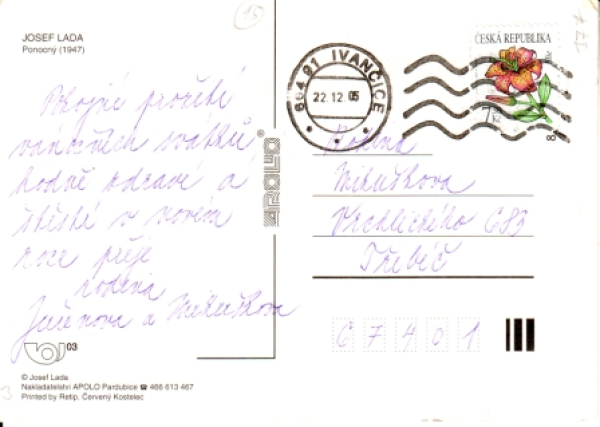 JOSEF LADA
Ponocný (1947)
15
Pokojné prožití
vánočních svátků
hodně zdraví a
štěstí v novém
roce přeje
rodina
a Mikuškova
03
© Josef Lada
Nakladatelství APOLO Pardubice ☎ 466 613 467
Printed by Retip, Červený Kostelec
APOLO®
664 91 IVANČICE
22.12.05
ČESKÁ REPUBLIKA
Kč
Rodina
Mikuškova
Vrchlického 683
Třebíč
67401